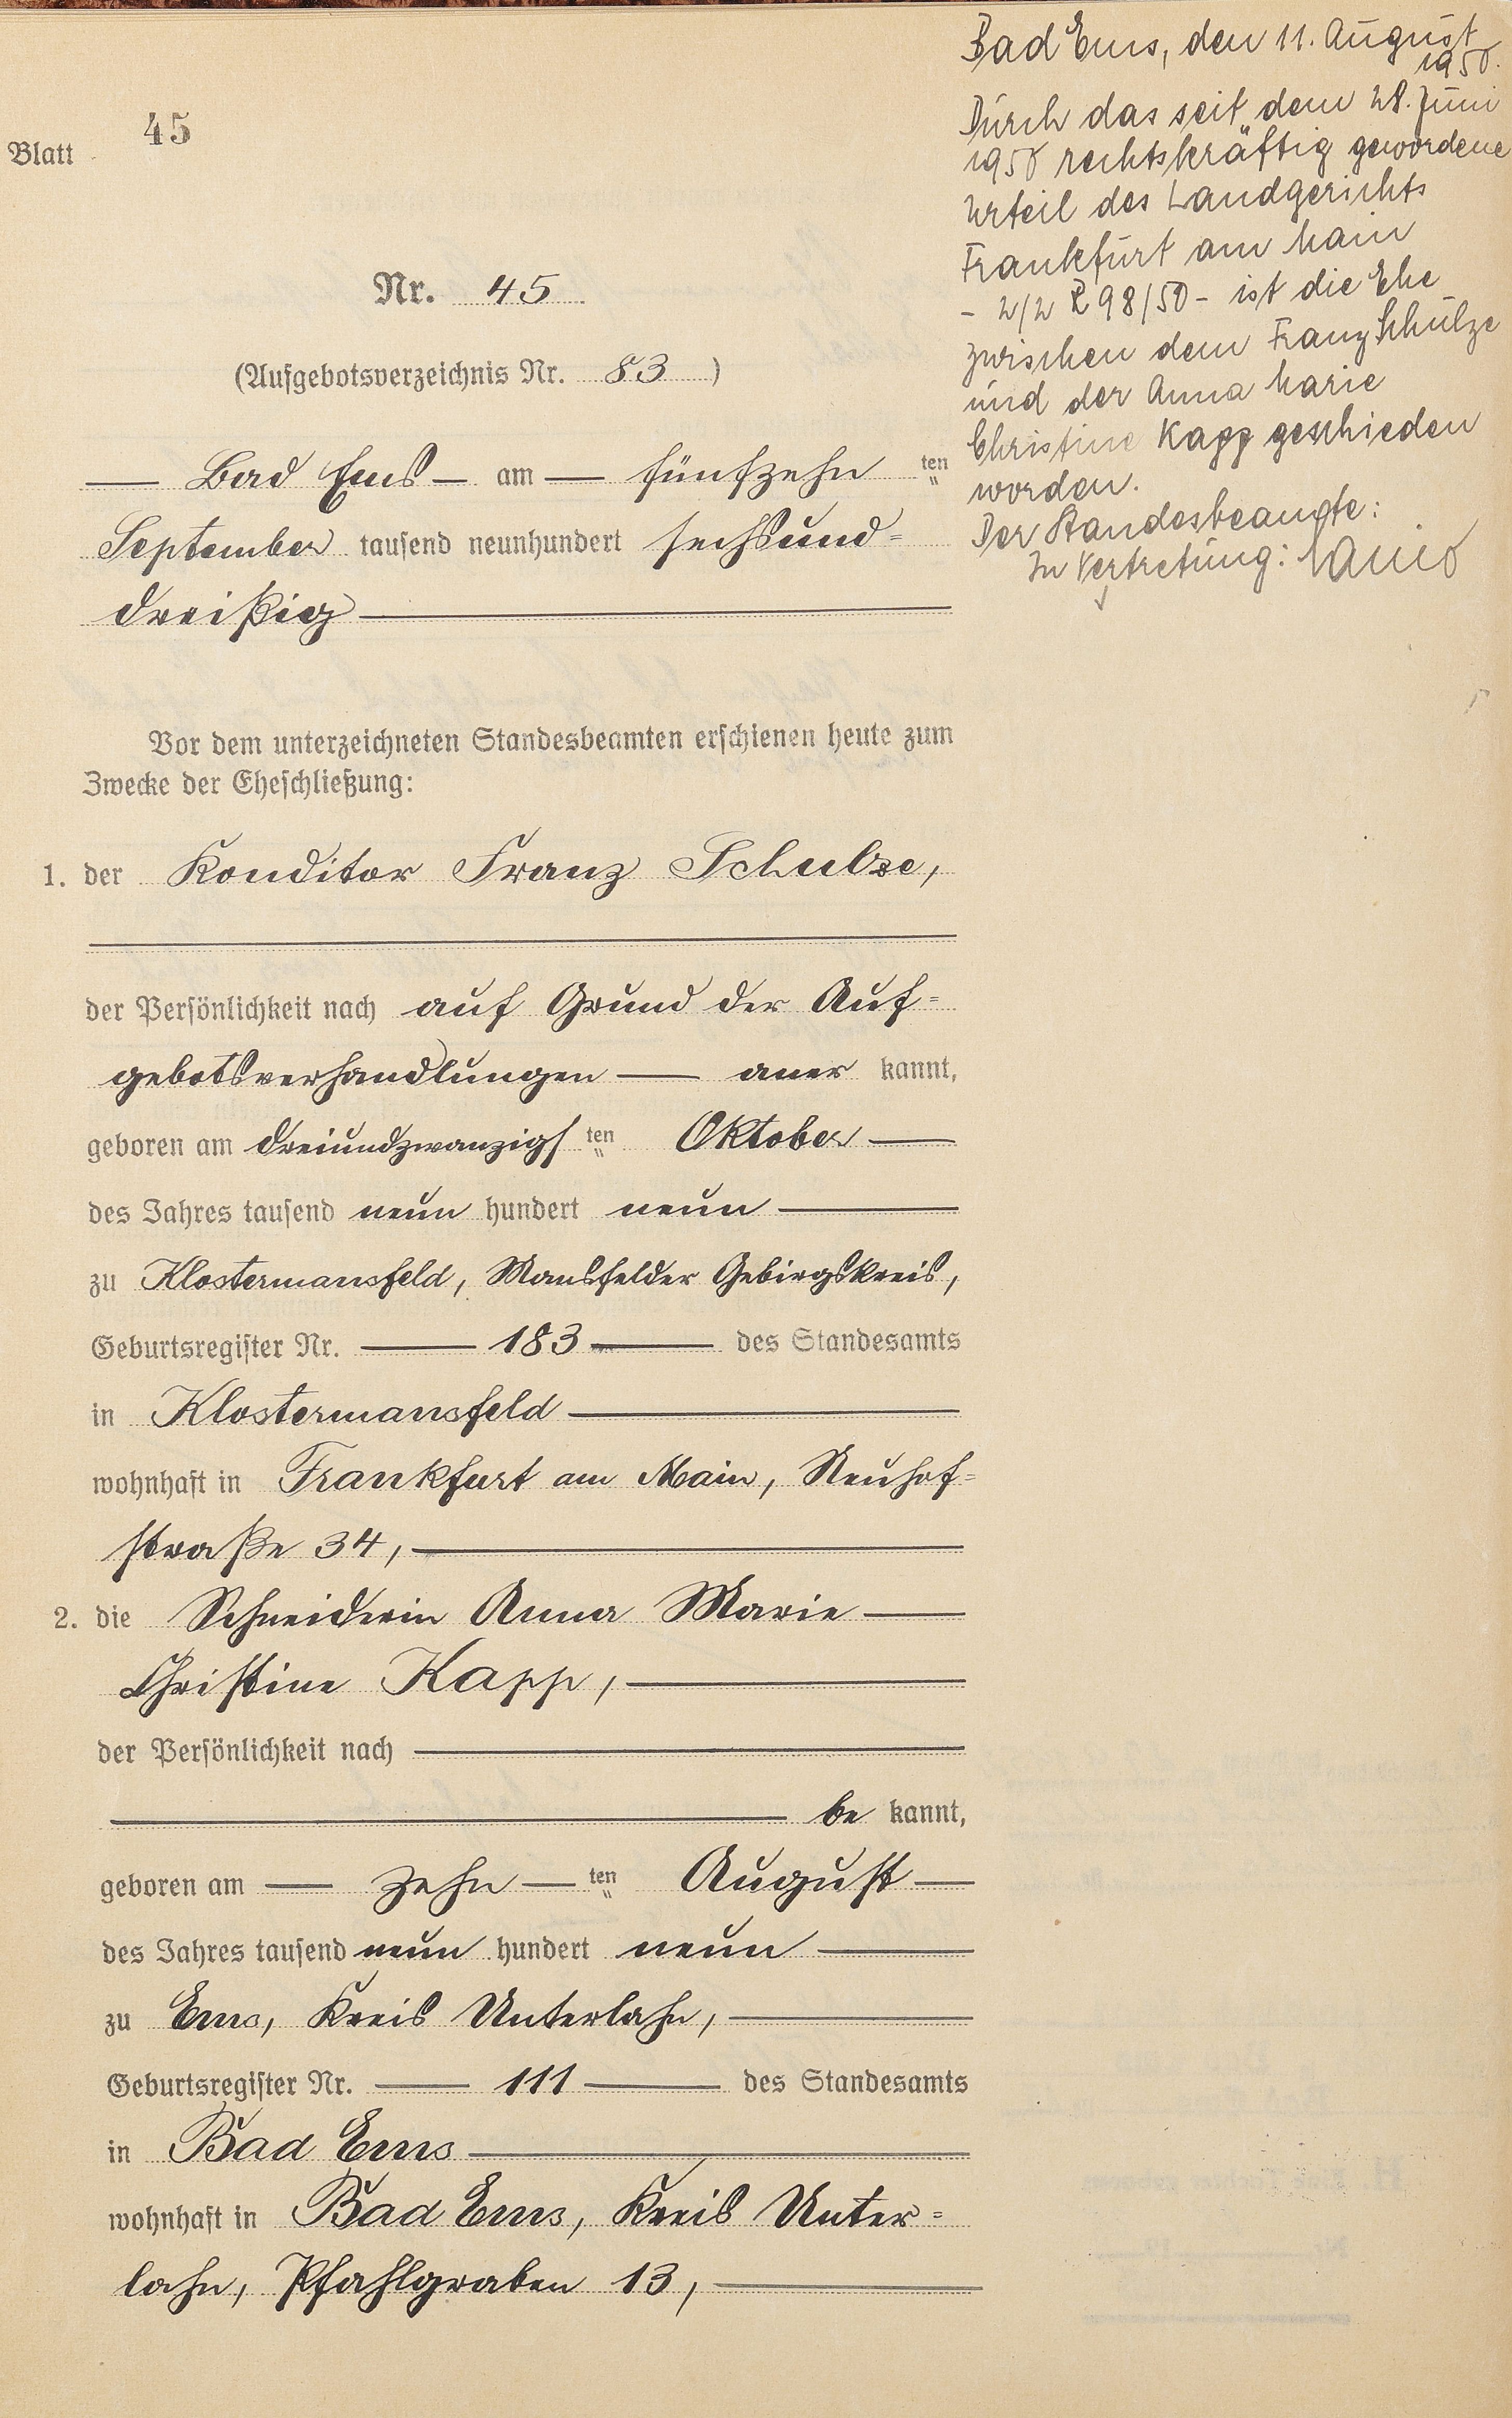 Blatt 45
Nr. 45
(Aufgebotsverzeichnis Nr. 83)
— Bad Ems — am — fünfzehn ten
September tausend neunhundert sechsund=
dreißig —
Vor dem unterzeichneten Standesbeamten erschienen heute zum
Zwecke der Eheschließung:
1. der Konditor Franz Schulze,
der Persönlichkeit nach auf Grund der Auf=
gebotsverhandlungen — aner kannt,
geboren am dreiundzwanzigs ten Oktober —
des Jahres tausend neun hundert neun —
zu Klostermansfeld, Mansfelder Gebirgskreis,
Geburtsregister Nr. — 183 — des Standesamts
in Klostermansfeld —
wohnhaft in Frankfurt am Main, Neuhof=
straße 34, —
2. die Schneiderin Anna Marie —
Christine Kapp, —
der Persönlichkeit nach —
— be kannt,
geboren am — zehn — ten August —
des Jahres tausend neun hundert neun —
zu Ems, Kreis Unterlahn, —
Geburtsregister Nr. — 111 — des Standesamts
in Bad Ems —
wohnhaft in Bad Ems, Kreis Unter=
lahn, Pfahlgraben 13, —
Bad Ems, den 11. August
1950.
Durch das seit dem 28. Juni
1950 rechtskräftig gewordene
Urteil des Landgerichts
Frankfurt am Main
- 2/2 R 98/50 - ist die Ehe
zwischen dem Franz Schulze
und der Anna Marie
Christine Kapp geschieden
worden.
Der Standesbeamte:
In Vertretung: